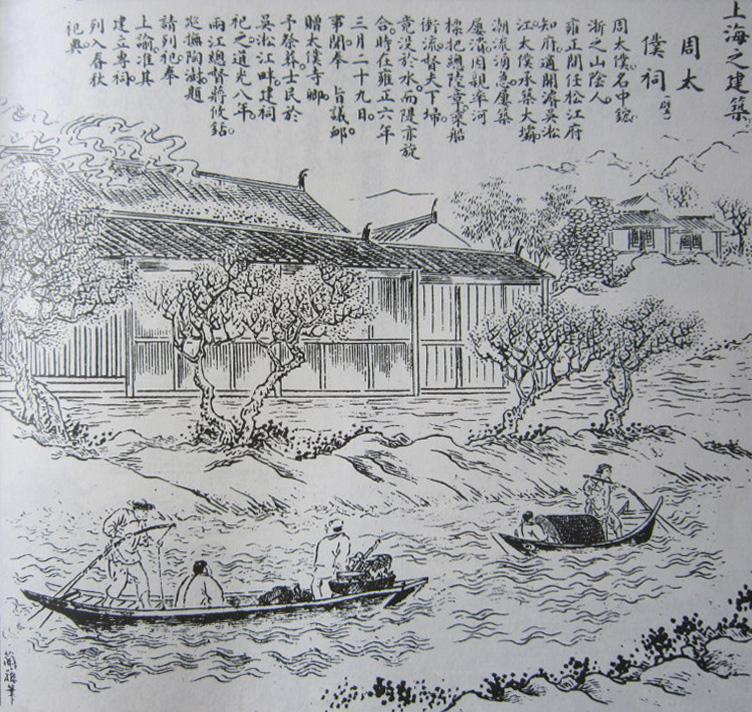 上海之建築
周太
僕祠
周太僕名中鋐
浙之山陰人。
雍正間任松江府
知府適開濬吳淞
江太僕承築大壩
潮流湧急屢築
屢潰因親率河
標把總陸章乘船
衝流督夫下埽。
竟没於水而隄亦旋
合時在雍正六年
三月二十九日。
事聞奉 旨議卹
贈太僕寺卿。
予祭葬士民於
吳淞江畔建祠
祀之道光八年。
兩江總督蔣攸銛
巡撫陶澍題
請列祀奉
上諭准其
建立專祠
列入春秋
祀典。